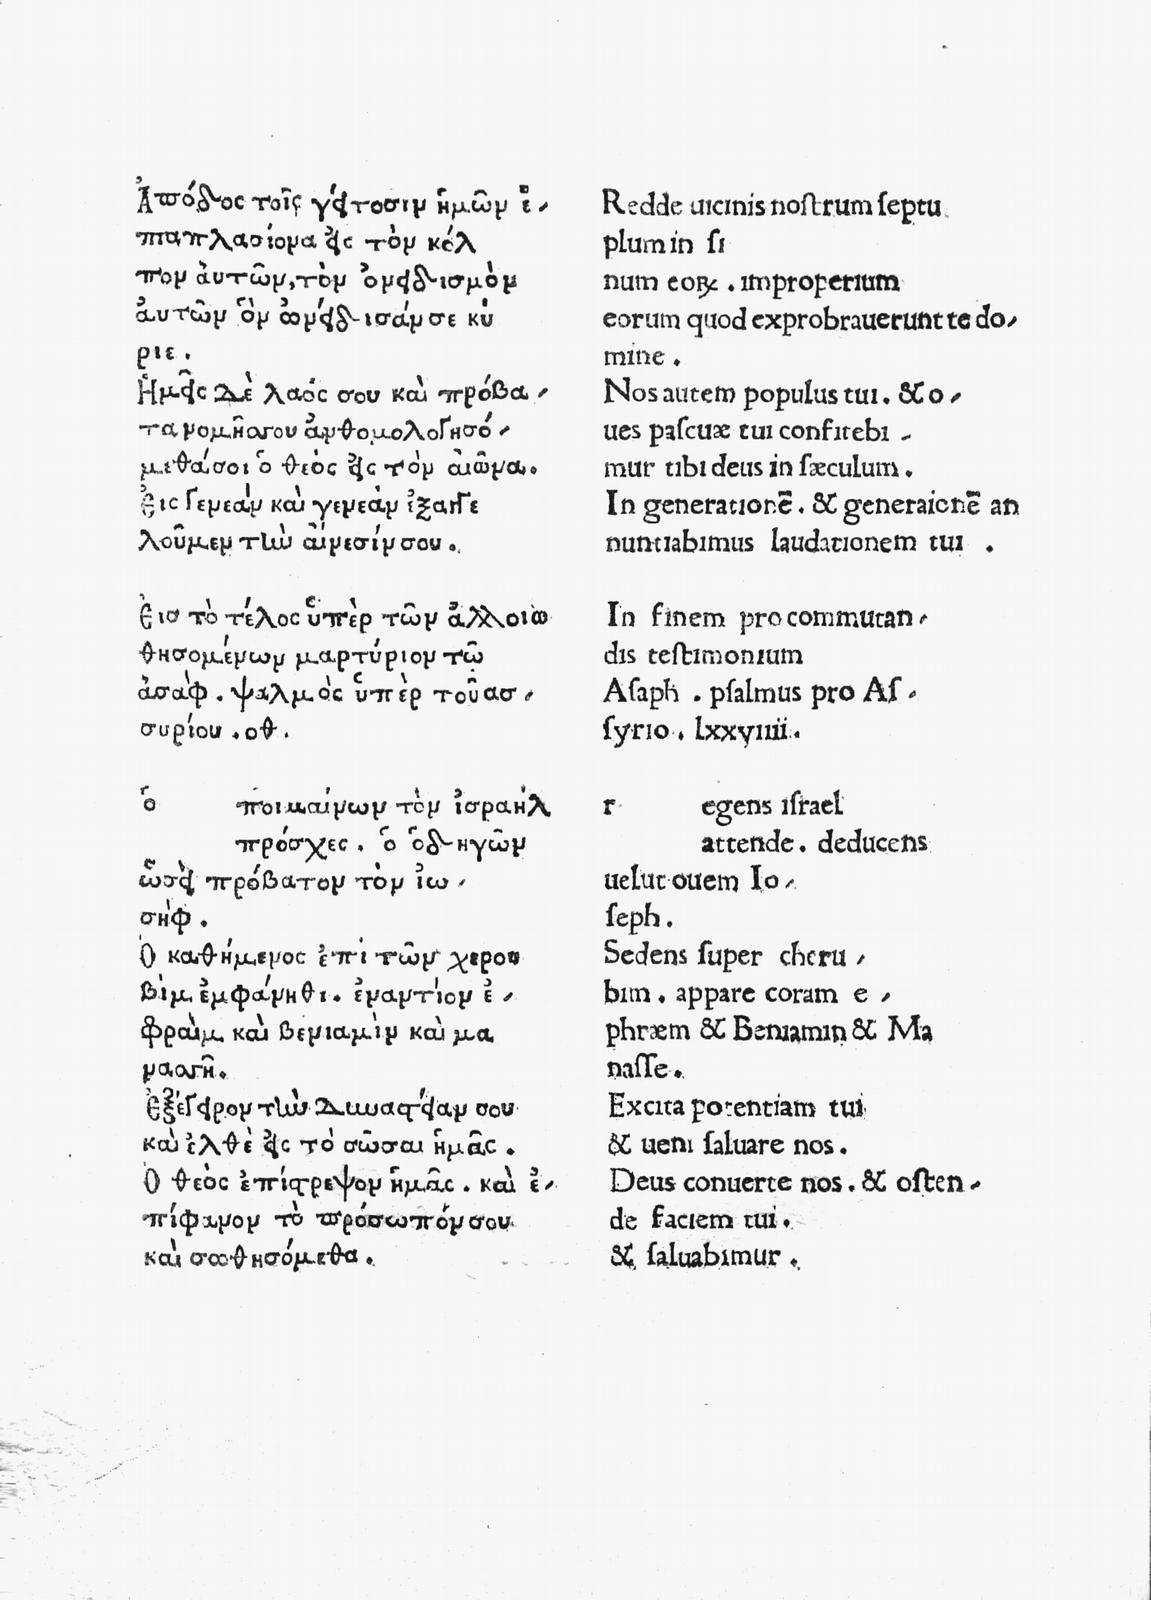 Ἀπόδος τοῖς γείτοσιν ἡμῶν ἑ-
παπλασίονα εἰς τὸν κόλ
πον ἀυτῶν, τὸν ὀνειδισμὸν
ἀυτῶν ὃν ὠνείδισάν σε κύ
ριε.
Ἡμεῖς δὲ λαός σου καὶ πρόβα-
τα νομῆσσου ἀνθομολογησό-
μεθάσοι ὁ θεὸς εἰς τὸν αἰῶνα.
Εἰς γενεὰν καὶ γενεὰν ἐξαγγε
λοῦμεν τὴν αἴνεσίν σου.
Εἰσ τὸ τέλος ὑπὲρ τῶν ἀλλοιω
θησομένων μαρτύριον τῶ
ἀσὰφ. ψαλμὸς ὑπὲρ τοῦ ασ-
συρίου. οθ.
ὁ ποιμαίνων τὸν ἰσραήλ
πρόσχες. ὁ ὁδηγῶν
ὡσεὶ πρόβατον τὸν ἰω-
σήφ.
Ὁ καθήμενος ἐπὶ τῶν χερου
βὶμ ἐμφάνηθι. ἐναντίον ἐ-
φραὶμ καὶ βενιαμὶν καὶ μα
νασσῆ.
Ἐξέγειρον τὴν δυναστείαν σου
καὶ ἐλθὲ εἰς τὸ σῶσαι ἡμᾶς.
Ὁ θεὸς ἐπίστρεψον ἡμᾶς. καὶ ἐ-
πίφανον τὸ πρόσωπόν σου
καὶ σωθησόμεθα.
Redde uicinis noſtrum ſeptu
plum in ſi
num eoꝝ. improperium
eorum quod exprobrauerunt te do-
mine.
Nos autem populus tui. & o-
ues paſcuæ tui confitebi-
mur tibi deus in ſæculum.
In generationē. & generaionē an
nuntiabimus laudationem tui.
In finem pro commutan-
dis teſtimonium
Aſaph. pſalmus pro Aſ-
ſyrio. lxxviiii.
r egens iſrael
attende. deducens
uelut ouem Io-
ſeph.
Sedens ſuper cheru-
bim. appare coram e-
phræm & Beniamin & Ma
naſſe.
Excita potentiam tui
& ueni ſaluare nos.
Deus conuerte nos. & oſten-
de faciem tui.
& ſaluabimur.